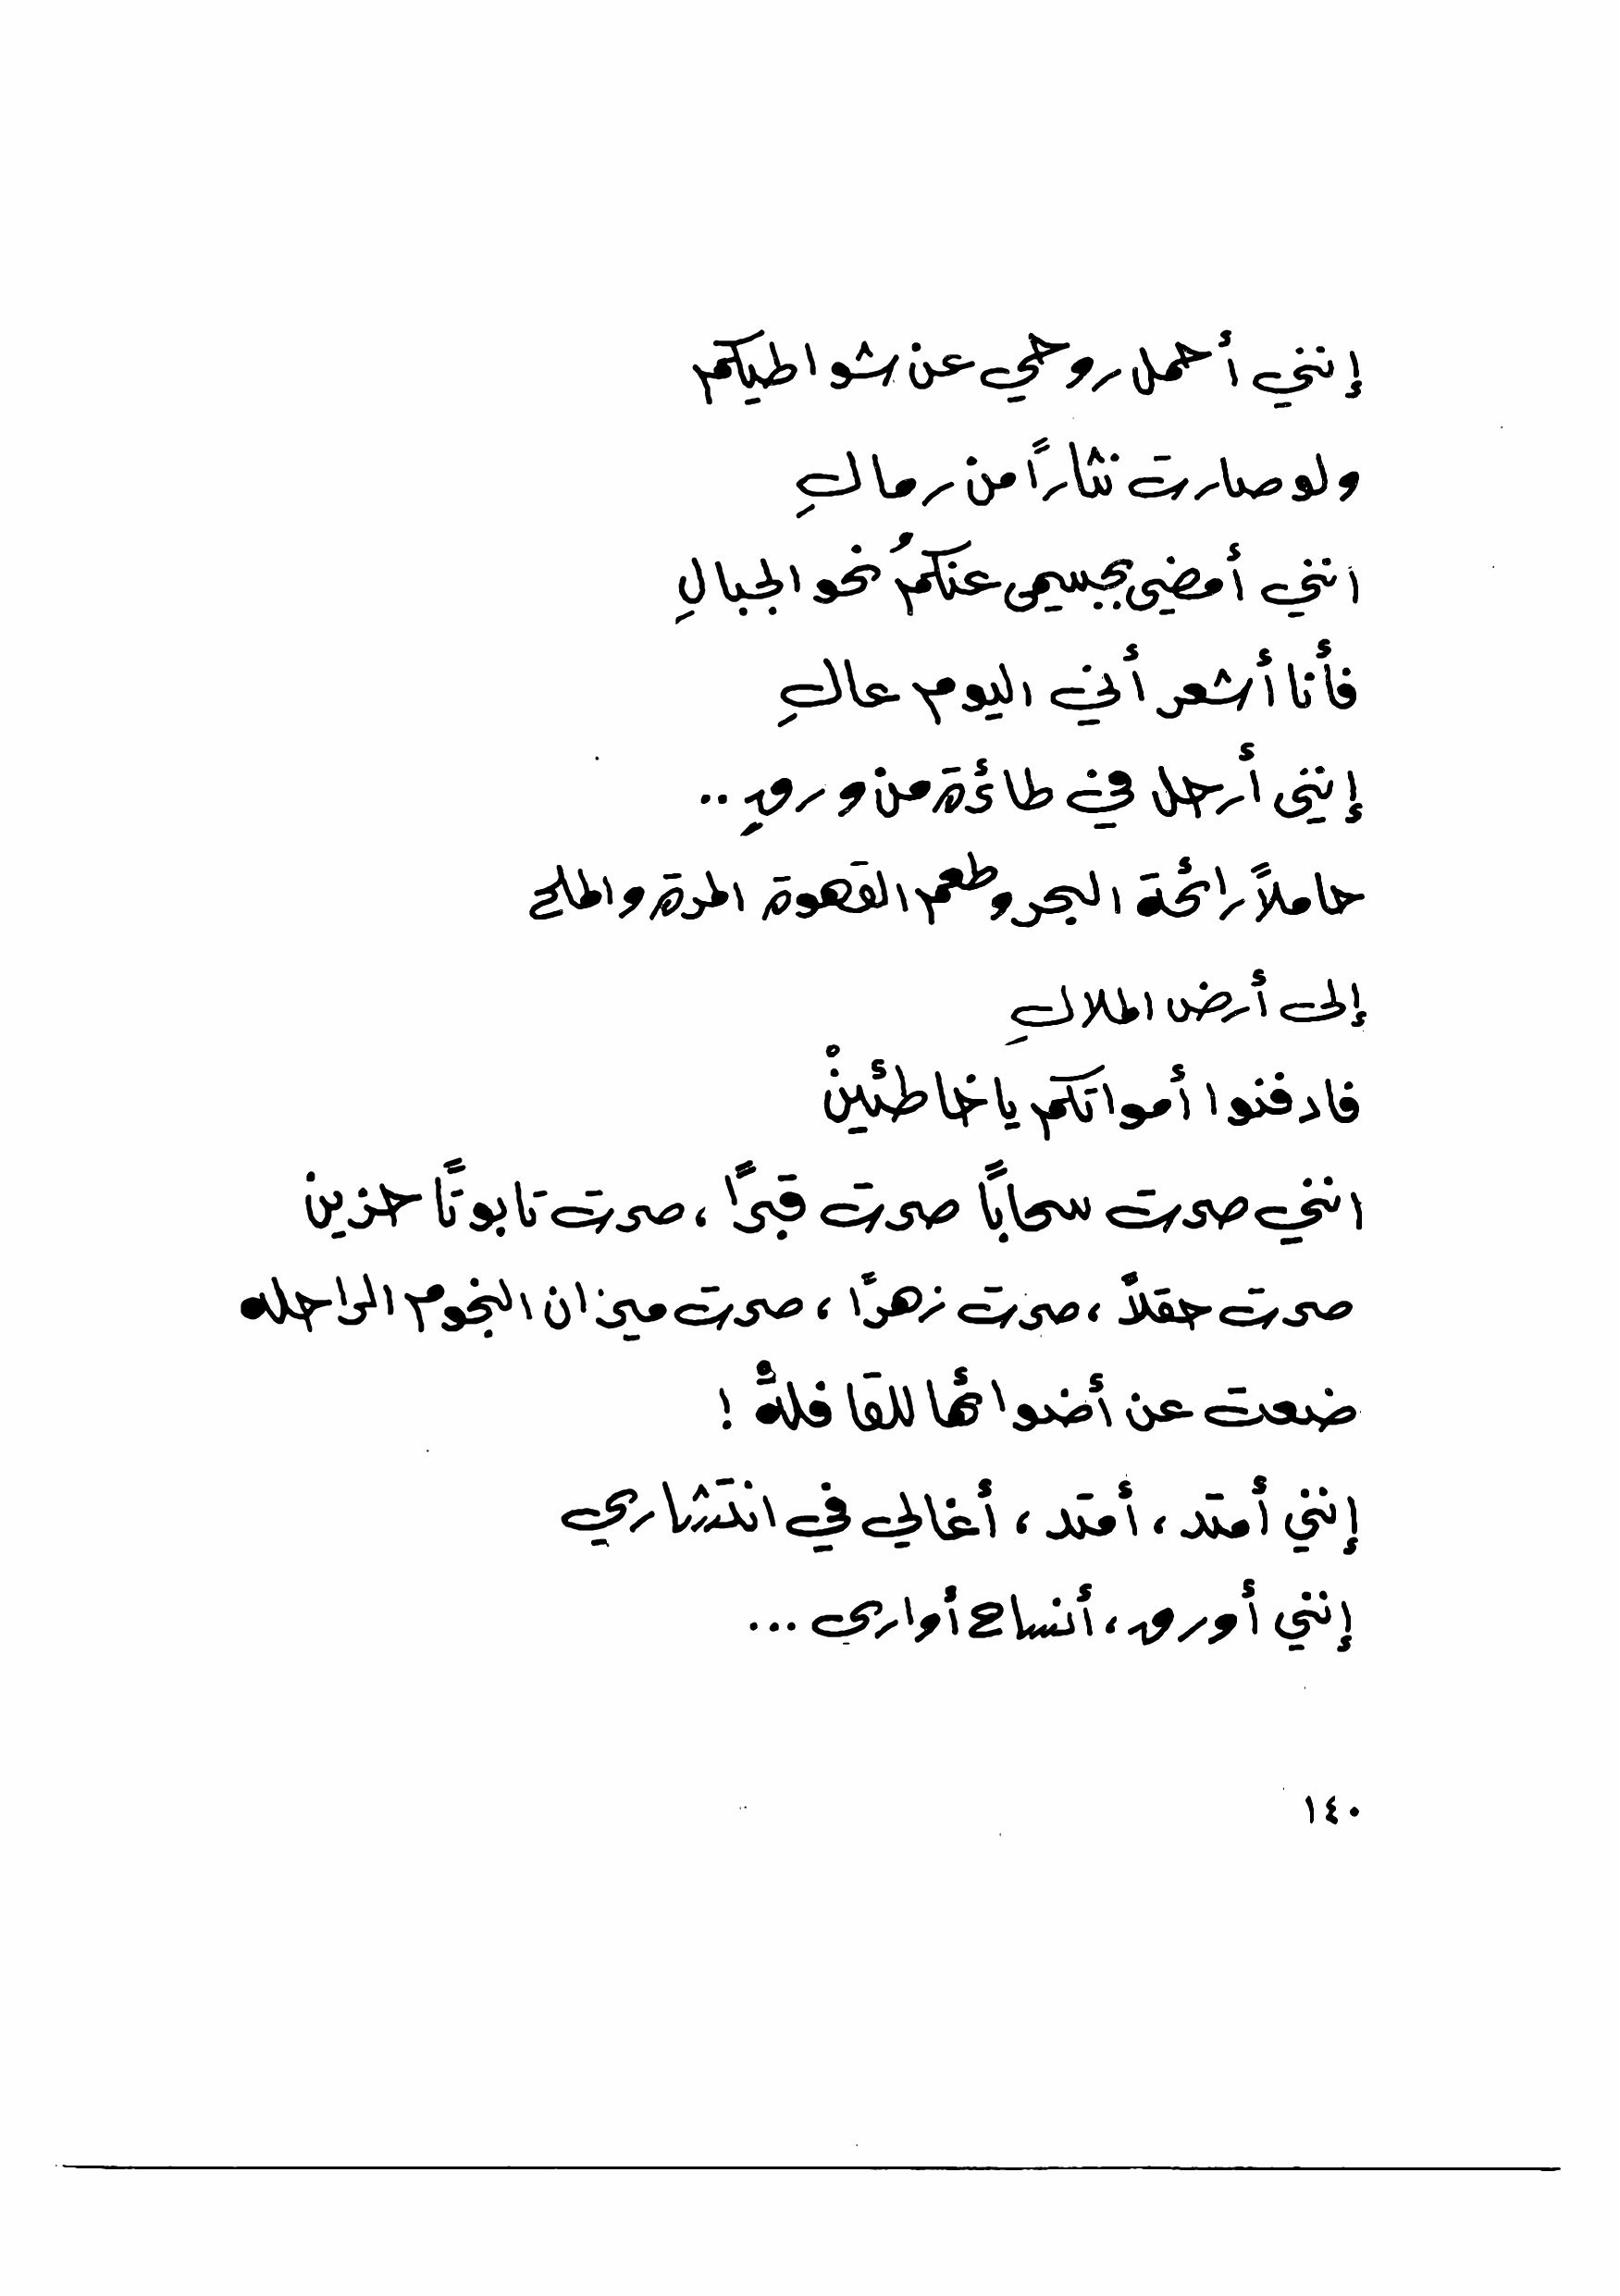 إنني أحمل روحي عن شواطيكم
ولو صارت نثاراً من رمالِ
انني أمضي بجسمي عنكمُ نحو الجبالِ
فأنا أشعر أني اليوم عالِ
إنني أرحل في طائرة من ورقٍ ..
حاملاً رائحة البحر وطعم القهوة المرة والملح
إلى أرض الملالِ
فادفنوا أمواتكم يا خاطئينْ
انني صرت سحاباً صرت قبراً ، صرت تابوتاً حزين
صرت حقلاً ، صرت زهراً ، صرت ميزان النجوم الراحله
ضعت عن أضوائها للقافلةْ !
إنني أمتد ، أمتد ، أغالي في انتشاري
إنني أورق ، أنساح أواري ...
١٤٠